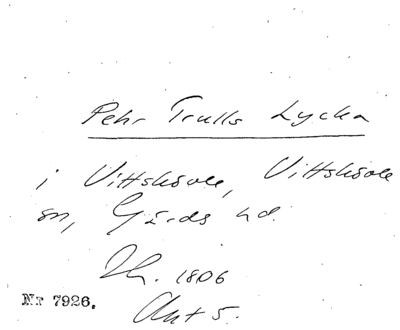 Pehr Trulls Lycka
i Vittskövle, Vittskövle
sn, Gärds hd.
Th. 1806
Nr 7926.
Akt 5.